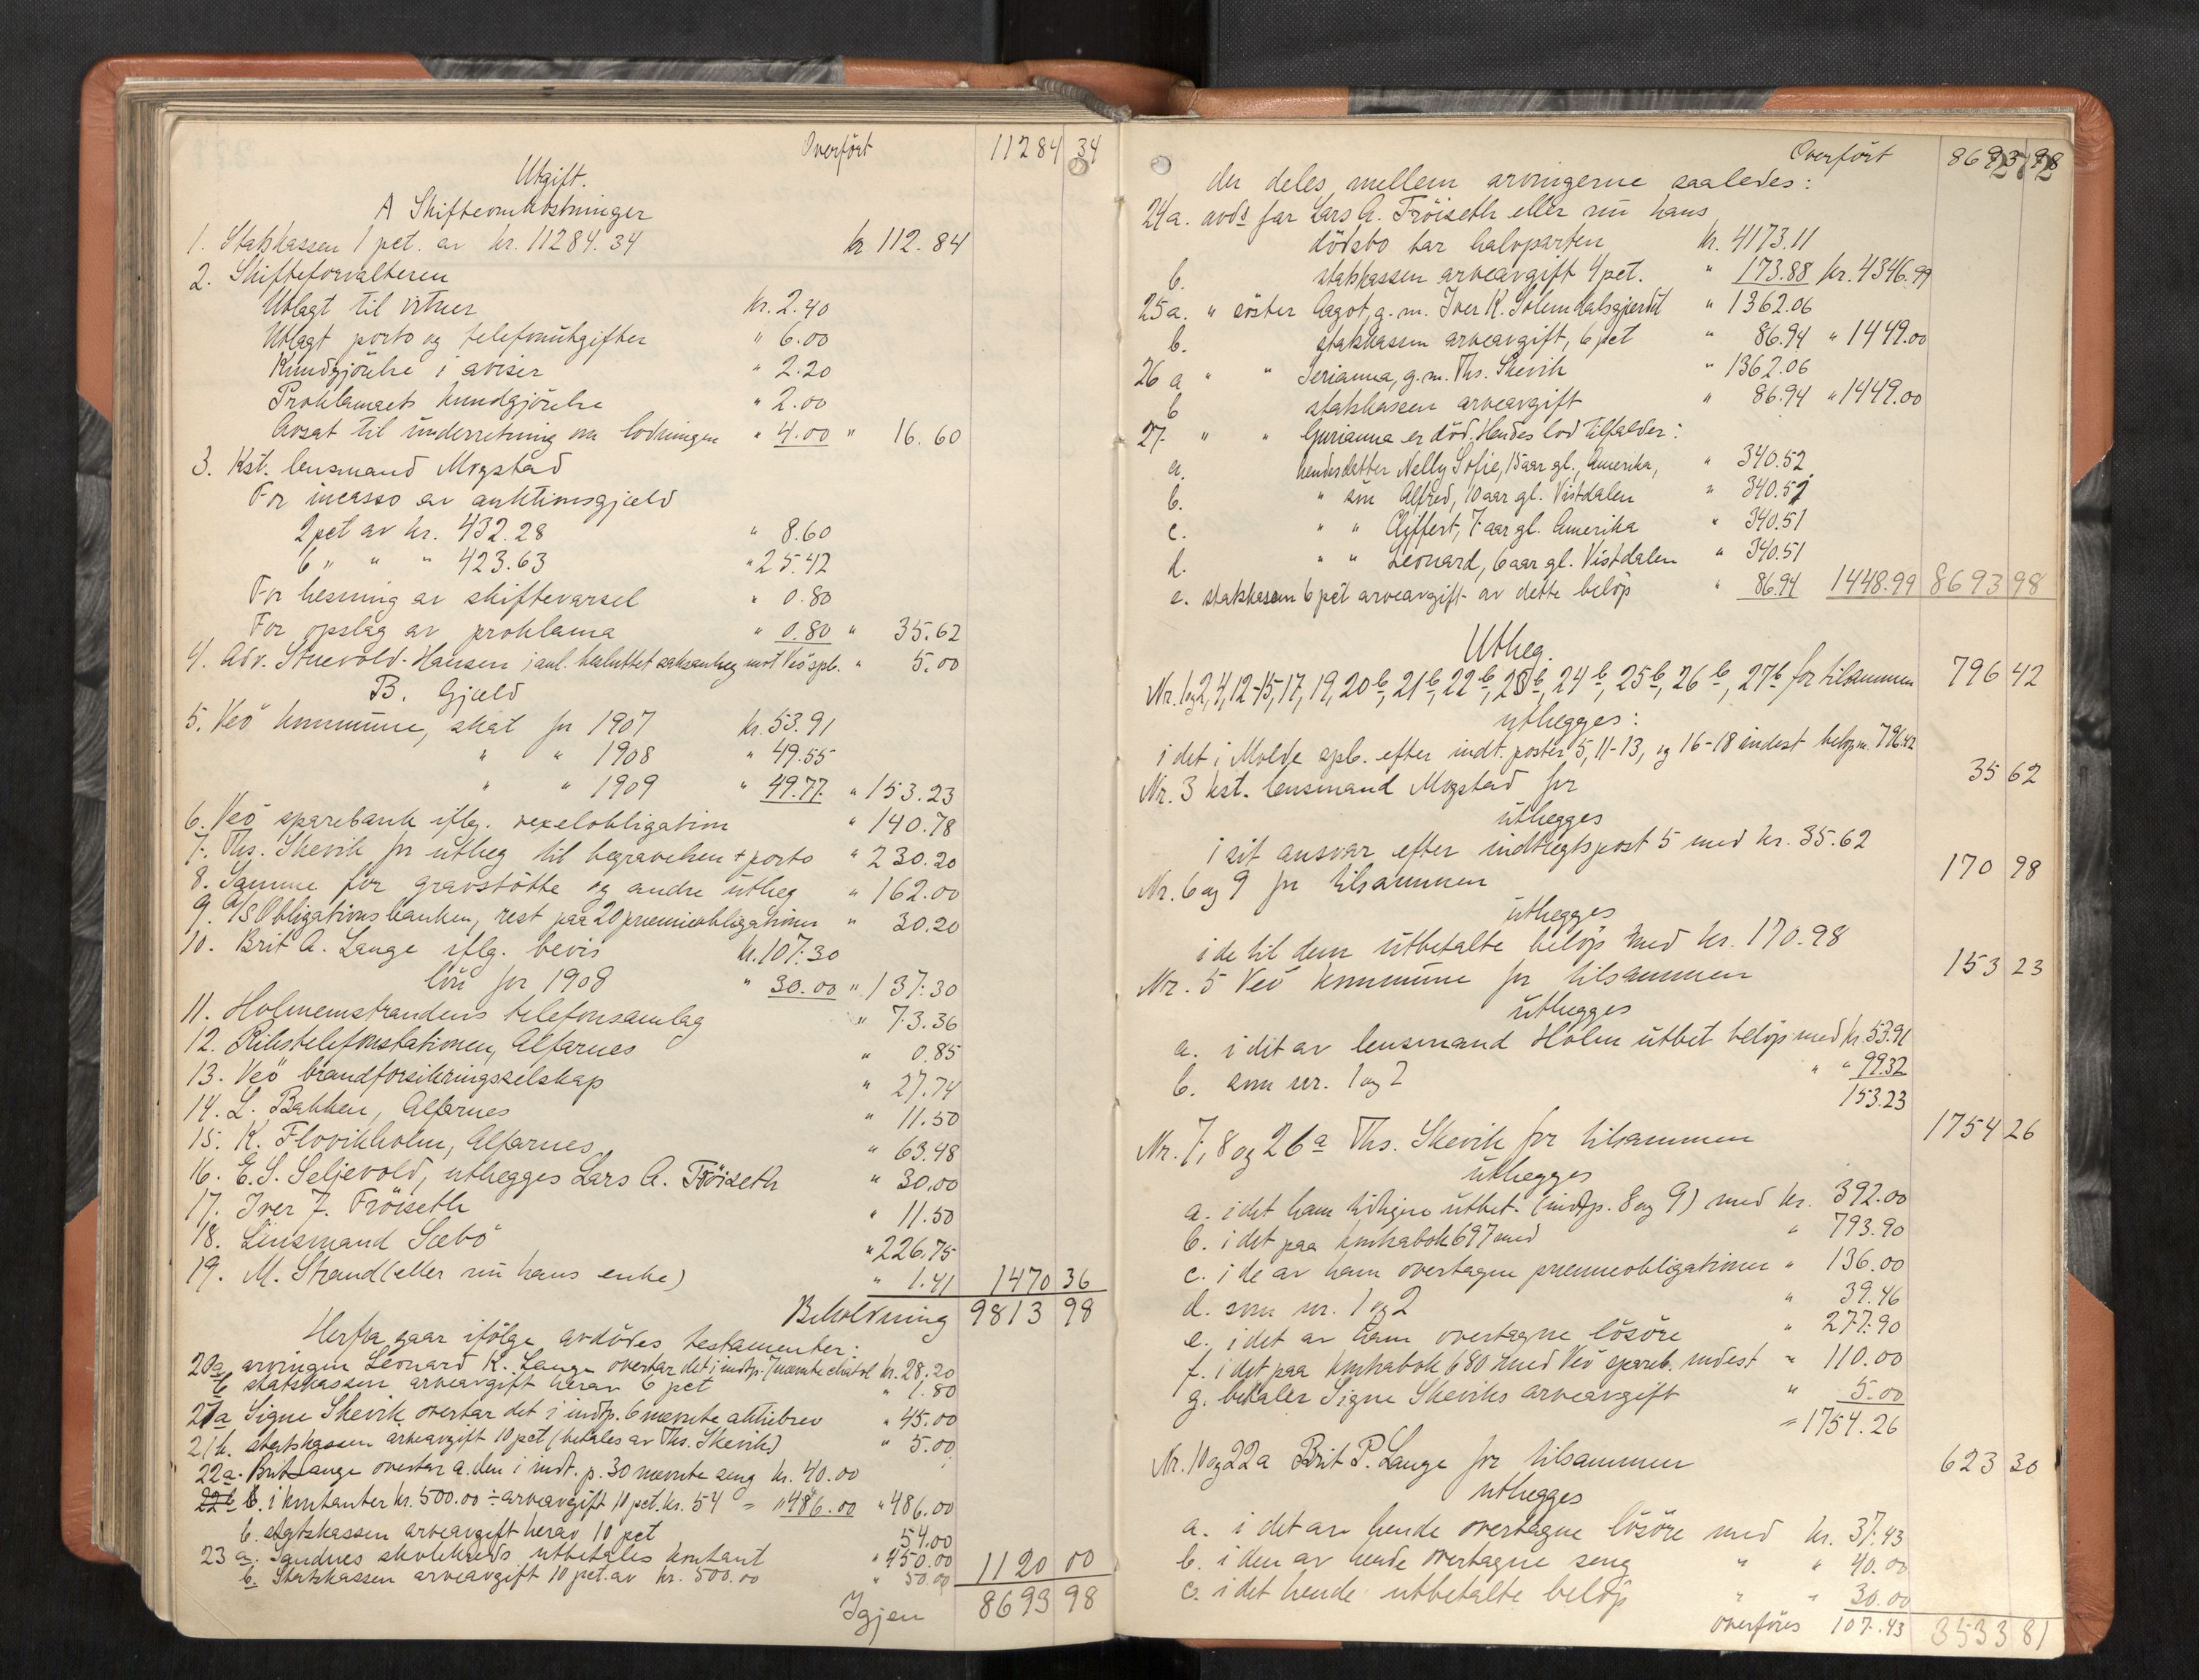 Overført 11284 34
Utgift.
A Skifteomkostninger
1. Statskassen 1 pct. av kr. 11284.34 kr 112.84
2. Skifteforvalteren
Utlagt til vitner kr. 2.40
Utlagt porto og telefonutgifter " 6.00
Kundgjörelse i aviser " 2.20
Proklamaets kundgjörelse " 2.00
Avsat til underretning om lodningen " 4.00 " 16.60
3. Kst. lensmand Mogstad
For incasso av auktionsgjæld
2 pct av kr. 432.28 " 8.60
6 " " " 423.63 " 25.42
For læsning av skiftevarsel " 0.80
For opslag av proklama " 0.80 " 35.62
4. Adv. Stuevold-Hansen i anl. besluttet saksanlæg mot Veö spb. " 5.00
B. Gjæld
5. Veö kommune, skat for 1907 kr. 53.91
" " 1908 " 49.55
" " 1909 " 49.77 " 153.23
6. Veö sparebank iflg. vexelobligation " 140.78
7. Ths. Skevik for utlæg til begravelsen + porto " 230.20
8. Samme for gravstötte og andre utlæg " 162.00
9. A/S Obligationsbanken, rest paa 20 premieobligationer " 30.20
10. Brit A. Lange iflg. bevis kr. 107.30
lön for 1908 " 30.00 " 137.30
11. Holmemstrandens telefonsamlag " 73.36
12. Rikstelefonstationen, Alfarnes " 0.85
13. Veö brandforsikringsselskap " 27.74
14. L. Bakken, Alfarnes " 11.50
15. K. Flovikholm, Alfarnes " 63.48
16. E. S. Seljevold, utlægges Lars A. Fröiseth " 30.00
17. Iver J. Fröiseth " 11.50
18. Lensmand Sæbö " 226.75
19. M. Strand (eller nu hans enke) " 1.41 1470 36
Beholdning 9813 98
Herfra gaar ifölge avdödes testamenter:
20a arvingen Leonard K. Lange overtar det i indtp. 7 nævnte chatol kr. 28.20
b statskassen arveavgift herav 6 pct " 1.80
21a Signe Skevik overtar det i indtp. 6 nævnte aktiebrev " 45.00
21b. statskassen arveavgift 10 pct (betales av Ths. Skevik) " 5.00
22a. Brit Lange overtar a. den i indt. p. 30 nævnte seng kr. 40.00
22b b. i kontanter kr. 500.00 ÷ arveavgift 10 pct. kr. 54 = " 486.00 " 486.00
b. statskassen arveavgift herav 10 pct 54.00
23 a. Sandnes skolekreds utbetales kontant " 450.00 1120 00
b. Statskassen arveavgift 10 pct. av kr. 500.00 " 50.00
Igjen 8693 98
Overført 8693 98
der deles mellem arvingerne saaledes:
24a. avds far Lars A. Fröiseth eller nu hans
dödsbo tar halvparten kr. 4173.11
b. statskassen arveavgift 4 pct. " 173.88 kr. 4346.99
25a. " söster Aagot, g. m. Iver K. Solemdalsgjerdet " 1362.06
b. statskassen arveavgift, 6 pct " 86.94 " 1449.00
26 a " " Serianna, g. m. Ths. Skevik " 1362.06
b statskassen arveavgift " 86.94 " 1449.00
27. " " Gurianna er död. Hendes lod tilfalder:
a. hendes datter Nelly Sofie, 15 aar gl., Amerika, " 340.52
b. " sön Alfred, 10 aar gl. Vistdalen " 340.51
c. " " Cliffert, 7 aar gl. Amerika " 340.51
d. " " Leonard, 6 aar gl. Vistdalen " 340.51
e. statskassen 6 pct arveavgift av dette belöp " 86.94 1448.99 8693 98
Utlæg.
Nr. 1 og 2, 4, 12-15, 17, 19, 20 b, 21 b, 22 b, 23 b, 24 b, 25 b, 26 b, 27 b for tilsammen 796 42
utlægges:
i det i Molde spb. efter indt. poster 5, 11-13, og 16-18 indest. belöp m. 796.42
Nr. 3 kst. lensmand Mogstad for 35 62
utlægges
i sit ansvar efter indtægtspost 5 med kr. 35.62
Nr. 6 og 9 for tilsammen 170 98
utlægges
i de til dem utbetalte belöp med kr. 170.98
Nr. 5 Veö kommune for tilsammen 153 23
utlægges
a. i det av lensmand Holm utbet belöp med kr. 53.91
b. som nr. 1 og 2 " " 99.32
153.23
Nr. 7, 8 og 26 a Ths. Skevik for tilsammen 1754 26
utlægges
a. i det ham tidligere utbet. (indtp. 8 og 9) med kr. 392.00
b. i det paa kontrabok 697 med " 793.90
c. i de av ham overtagne premieobligationer " 136.00
d. som nr. 1 og 2 " 39.46
e. i det av ham overtagne lösöre " 277.90
f. i det paa kontrabok 680 med Veö spareb. indest " 110.00
g. betaler Signe Skeviks arveavgift " 5.00
= 1754.26
Nr. 10 og 22a Brit P. Lange for tilsammen 623 30
utlægges
a. i det av hende overtagne lösöre med kr. 37.43
b. i den av hende overtagne seng " " 40.00
c. i det hende utbetalte belöp " " 30.00
overföres 107.43 3533 81